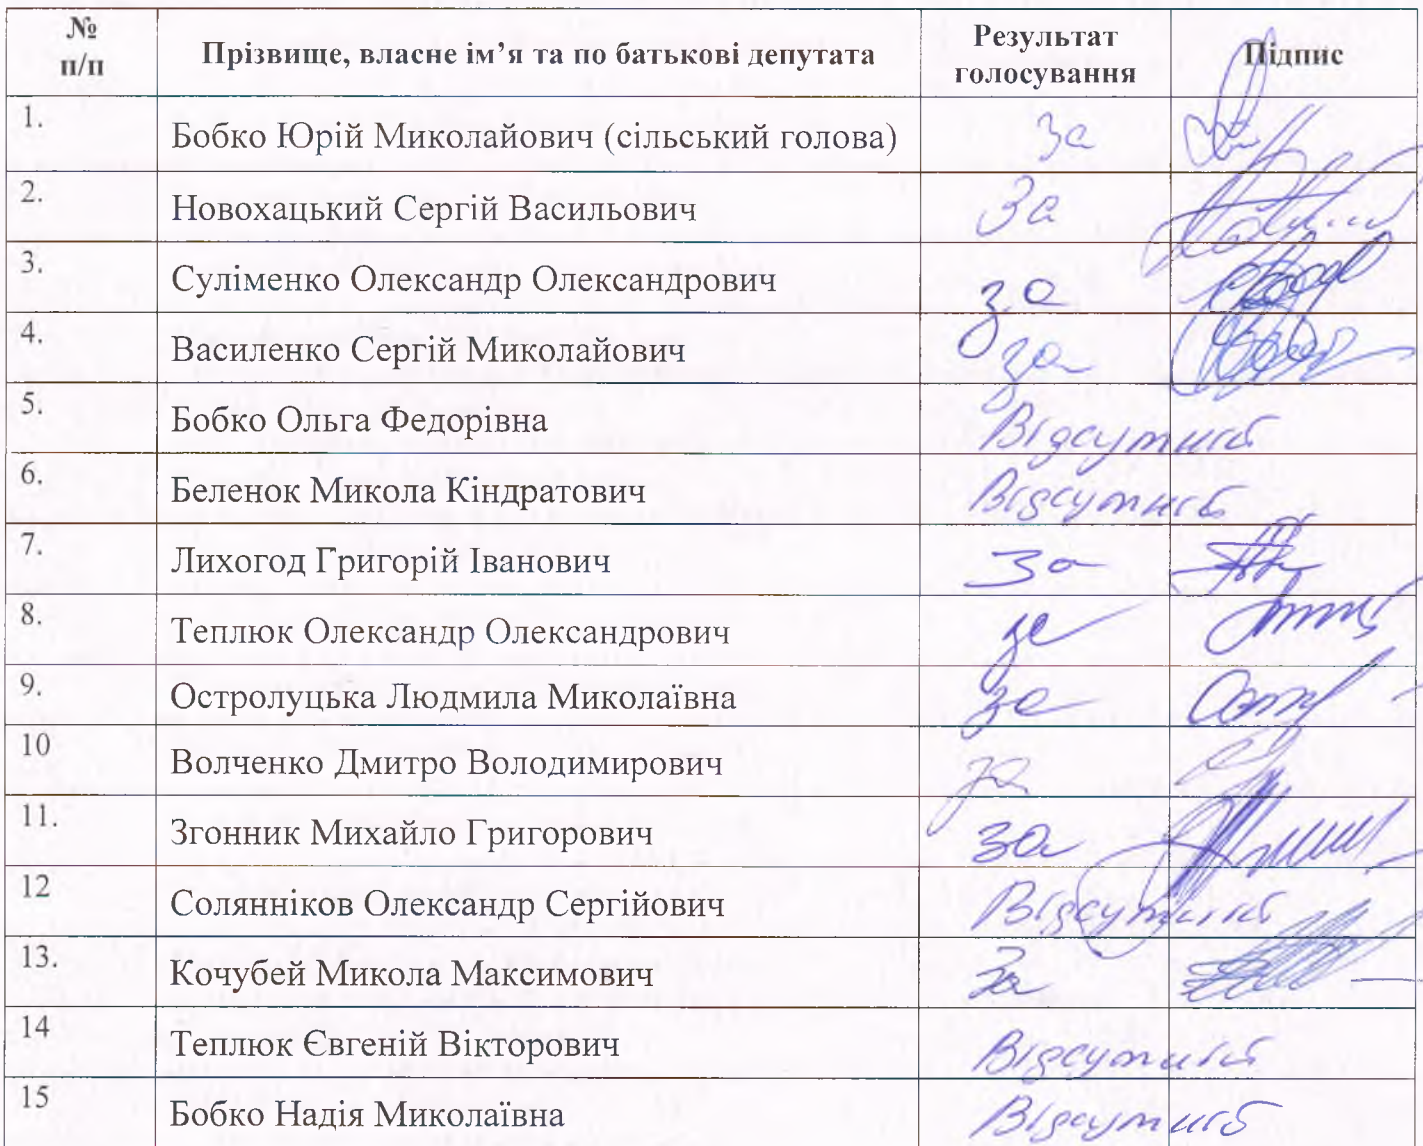 № п/п Прізвище, власне ім’я та по батькові депутата Результат голосування Підпис
1. Бобко Юрій Миколайович (сільський голова) за
2. Новохацький Сергій Васильович За
3. Суліменко Олександр Олександрович за
4. Василенко Сергій Миколайович за
5. Бобко Ольга Федорівна Відсутній
6. Беленок Микола Кіндратович Відсутній
7. Лихогод Григорій Іванович За
8. Теплюк Олександр Олександрович за
9. Остролуцька Людмила Миколаївна за
10 Волченко Дмитро Володимирович за
11. Згонник Михайло Григорович за
12 Солянніков Олександр Сергійович Відсутній
13. Кочубей Микола Максимович За
14 Теплюк Євгеній Вікторович Відсутній
15 Бобко Надія Миколаївна Відсутній